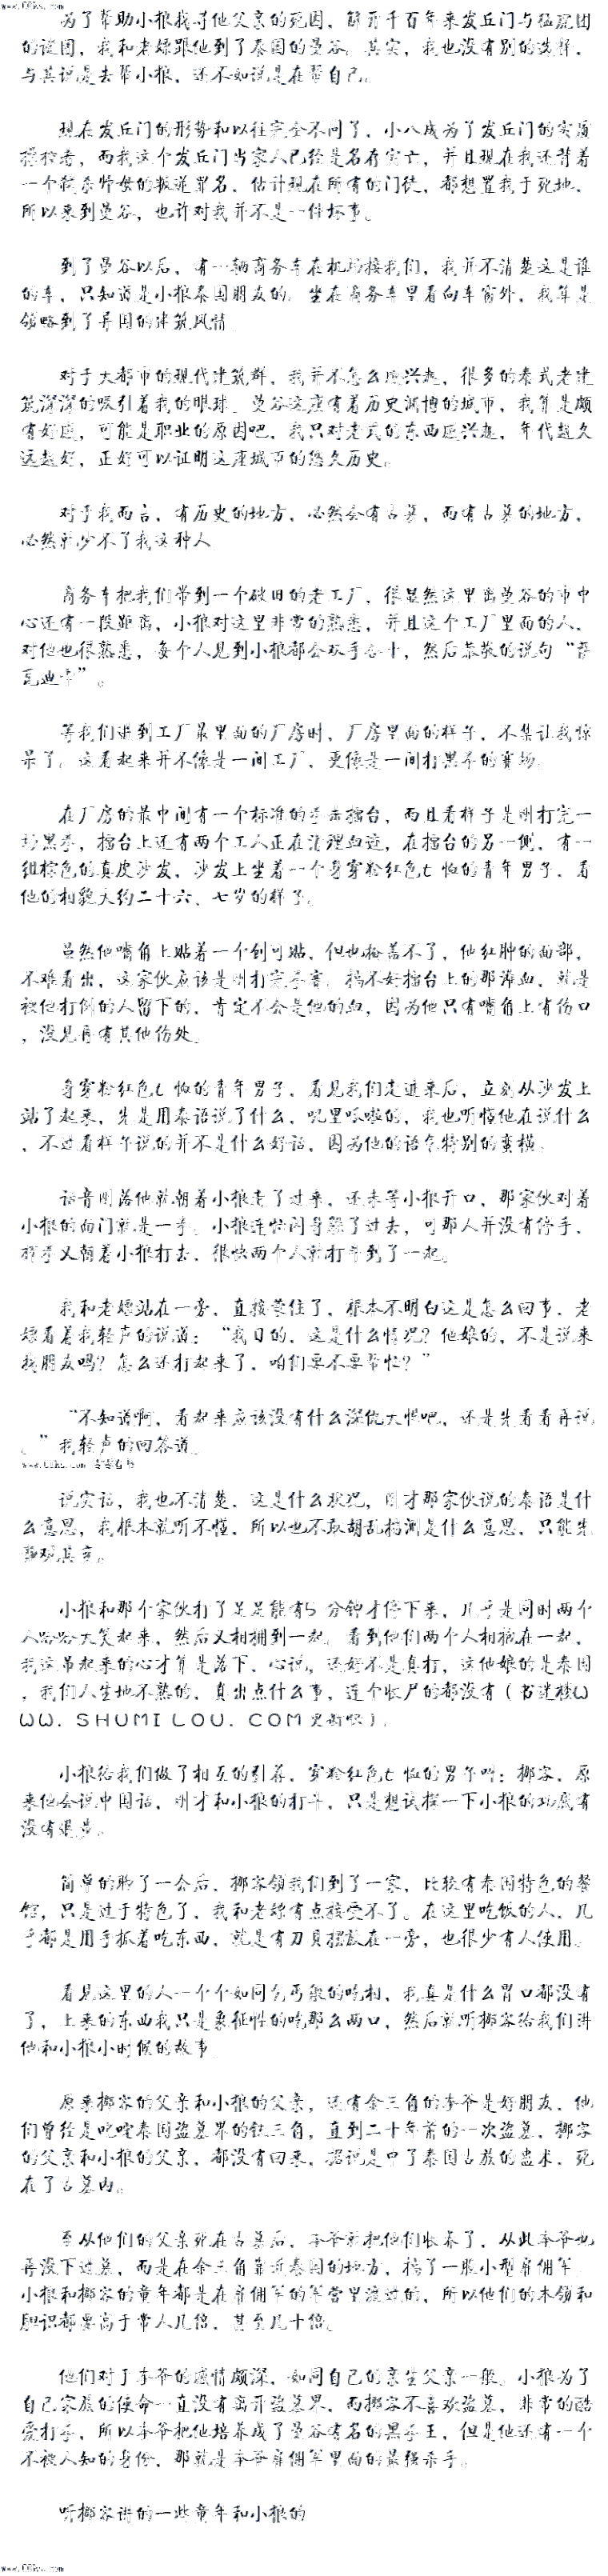 www.00ks.com
为了帮助小狼找寻他父亲的死因，解开千百年来发丘门与猛虎团
的谜团，我和老嫖跟他到了泰国的曼谷。其实，我也没有别的选择，
与其说是去帮小狼，还不如说是在帮自己。
现在发丘门的形势和以往完全不同了，小八成为了发丘门的实质
操控者，而我这个发丘门当家人已经是名存实亡，并且现在我还背着
一个弑杀师母的叛逆罪名，估计现在所有的门徒，都想置我于死地，
所以来到曼谷，也许对我并不是一件坏事。
到了曼谷以后，有一辆商务车在机场接我们，我并不清楚这是谁
的车，只知道是小狼泰国朋友的。坐在商务车里看向车窗外，我算是
领略到了异国的建筑风情。
对于大都市的现代建筑群，我并不怎么感兴趣，很多的泰式老建
筑深深的吸引着我的眼球。曼谷这座有着历史渊博的城市，我算是颇
有好感，可能是职业的原因吧，我只对老式的东西感兴趣，年代越久
远越好，正好可以证明这座城市的悠久历史。
对于我而言，有历史的地方，必然会有古墓，而有古墓的地方，
必然就少不了我这种人
商务车把我们带到一个破旧的老工厂，很显然这里离曼谷的市中
心还有一段距离，小狼对这里非常的熟悉，并且这个工厂里面的人，
对他也很熟悉，每个人见到小狼都会双手合十，然后恭敬的说句“萨
瓦迪卡”。
等我们进到工厂最里面的厂房时，厂房里面的样子，不禁让我惊
呆了。这看起来并不像是一间工厂，更像是一间打黑拳的赛场。
在厂房的最中间有一个标准的拳击擂台，而且看样子是刚打完一
场黑拳，擂台上还有两个工人正在清理血迹，在擂台的另一侧，有一
组棕色的真皮沙发，沙发上坐着一个身穿粉红色t恤的青年男子，看
他的相貌大约二十六、七岁的样子。
虽然他嘴角上贴着一个创可贴，但也掩盖不了，他红肿的面部，
不难看出，这家伙应该是刚打完拳赛，搞不好擂台上的那滩血，就是
被他打倒的人留下的，肯定不会是他的血，因为他只有嘴角上有伤口
，没见再有其他伤处。
身穿粉红色t恤的青年男子，看见我们走进来后，立刻从沙发上
站了起来，先是用泰语说了什么，叽里呱啦的，我也听懂他在说什么
，不过看样子说的并不是什么好话，因为他的语气特别的蛮横。
话音刚落他就朝着小狼走了过来，还未等小狼开口，那家伙对着
小狼的面门就是一拳。小狼连忙闪身躲了过去，可那人并没有停手，
挥拳又朝着小狼打去，很快两个人就打斗到了一起。
我和老嫖站在一旁，直接蒙住了，根本不明白这是怎么回事，老
嫖看着我轻声的说道：“我日的，这是什么情况？他娘的，不是说来
找朋友吗？怎么还打起来了，咱们要不要帮忙？”
“不知道啊，看起来应该没有什么深仇大恨吧，还是先看看再说
。”我轻声的回答道。
www.00ks.com 零零看书
说实话，我也不清楚，这是什么状况，刚才那家伙说的泰语是什
么意思，我根本就听不懂，所以也不敢胡乱揣测是什么意思，只能先
静观其变。
小狼和那个家伙打了足足能有5分钟才停下来，几乎是同时两个
人哈哈大笑起来，然后又相拥到一起，看到他们两个人相拥在一起，
我这吊起来的心才算是落下，心说，还好不是真打，这他娘的是泰国
，我们人生地不熟的，真出点什么事，连个收尸的都没有（书迷楼W
WW．SHUMILOU．COM更新快）。
小狼给我们做了相互的引荐，穿粉红色t恤的男子叫：挪客，原
来他会说中国话，刚才和小狼的打斗，只是想试探一下小狼的功底有
没有退步。
简单的聊了一会后，挪客领我们到了一家，比较有泰国特色的餐
馆，只是过于特色了，我和老嫖有点接受不了。在这里吃饭的人，几
乎都是用手抓着吃东西，就是有刀具摆放在一旁，也很少有人使用。
看见这里的人一个个如同乞丐般的吃相，我真是什么胃口都没有
了，上来的东西我只是象征性的吃那么两口，然后就听挪客给我们讲
他和小狼小时候的故事。
原来挪客的父亲和小狼的父亲，还有金三角的李爷是好朋友，他
们曾经是叱咤泰国盗墓界的铁三角，直到二十年前的一次盗墓，挪客
的父亲和小狼的父亲，都没有回来，据说是中了泰国古族的蛊术，死
在了古墓内。
至从他们的父亲死在古墓后，李爷就把他们收养了，从此李爷也
再没下过墓，而是在金三角靠近泰国的地方，搞了一股小型雇佣军，
小狼和挪客的童年都是在雇佣军的军营里渡过的，所以他们的本领和
胆识都要高于常人几倍，甚至几十倍。
他们对于李爷的感情颇深，如同自己的亲生父亲一般。小狼为了
自己家族的使命一直没有离开盗墓界，而挪客不喜欢盗墓，非常的酷
爱打拳，所以李爷把他培养成了曼谷有名的黑拳王，但是他还有一个
不被人知的身份，那就是李爷雇佣军里面的最强杀手。
听挪客讲的一些童年和小狼的
www.00ks.com